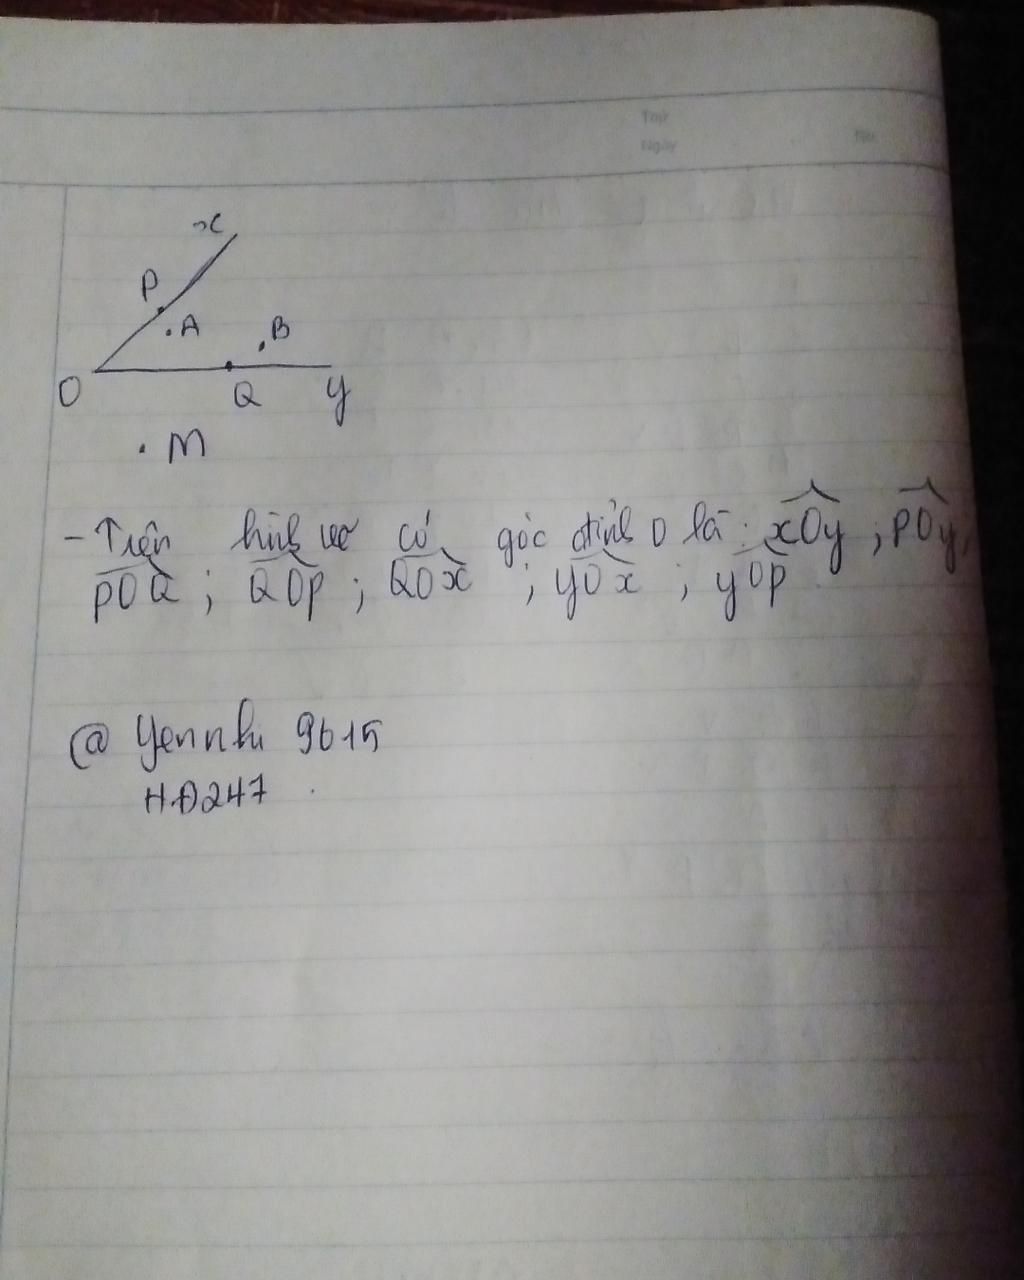 Thứ
Ngày No
x
P
A
B
O
Q
y
M
- Trên hình vẽ có góc đỉnh O là: xOy ; POy,
POQ ; QOP ; QOx ; yOx ; yOp
@ Yennhi 9615
HĐ247